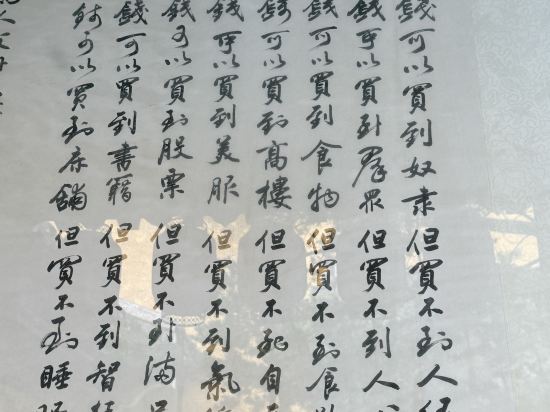 錢可以買到奴隶但買不到人
錢可以買到群眾但買不到人
錢可以買到食物但買不到食
錢可以買到高樓但買不到自
錢可以買到美服但買不到氣
錢可以買到股票但買不到滿足
錢可以買到書籍但買不到智
錢可以買到床鋪但買不到睡